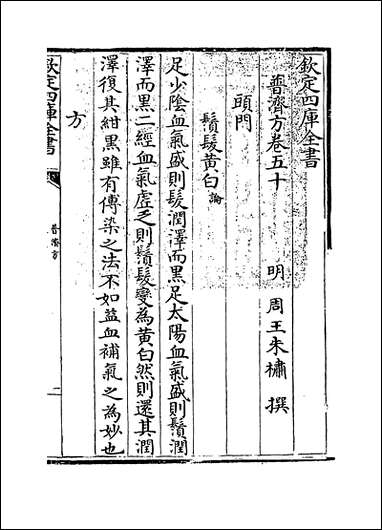 欽定四庫全書
普濟方卷五十
明 周王朱橚 撰
頭門
鬚髮黄白論
足少陰血氣盛則髮潤澤而黑足太陽血氣盛則鬚潤
澤而黑二經血氣虛乏則鬚髮變為黄白然則還其潤
澤復其紺黒雖有傅染之法不如益血補氣之為妙也
方
欽定四庫全書
普濟方
一